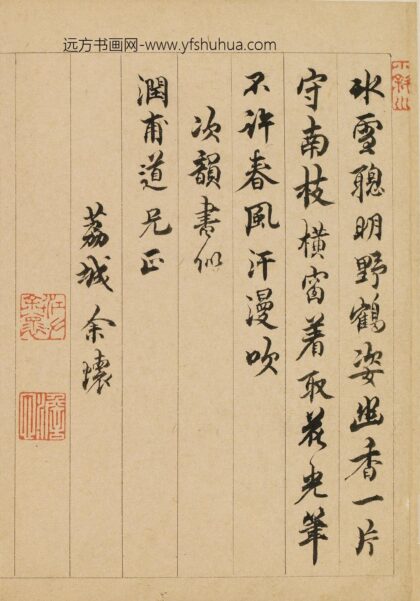 远方书画网-www.yfshuhua.com
冰雪聰明野鶴姿幽香一片
守南枝橫窗着取花光筆
不許春風汗漫吹
次韻書似
潤甫道兄正
荔城余懷